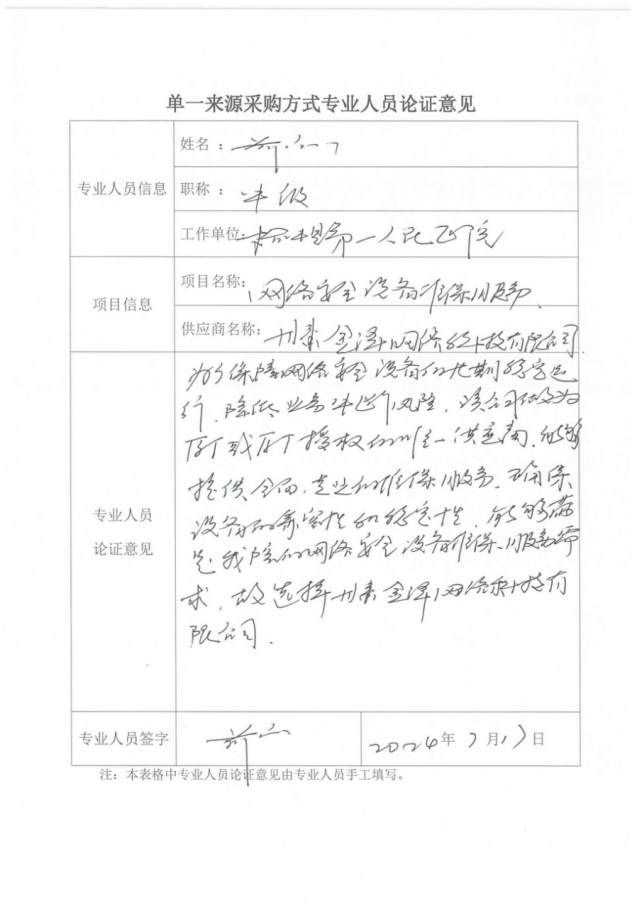 单一来源采购方式专业人员论证意见
专业人员信息
姓名：
职称：中级
工作单位：第一人民医院
项目信息
项目名称：网络安全设备维保服务
供应商名称：金泽网络科技有限公司
专业人员
论证意见
为了保障网络安全设备的长期稳定运
行，降低业务中断风险，该公司做为
原厂或原厂授权的唯一供应商，能够
提供全面、专业的维保服务，确保
设备的兼容性和稳定性，能够满
足我院的网络安全设备维保服务需
求，故选择金泽网络科技有
限公司。
专业人员签字
2024年7月17日
注：本表格中专业人员论证意见由专业人员手工填写。